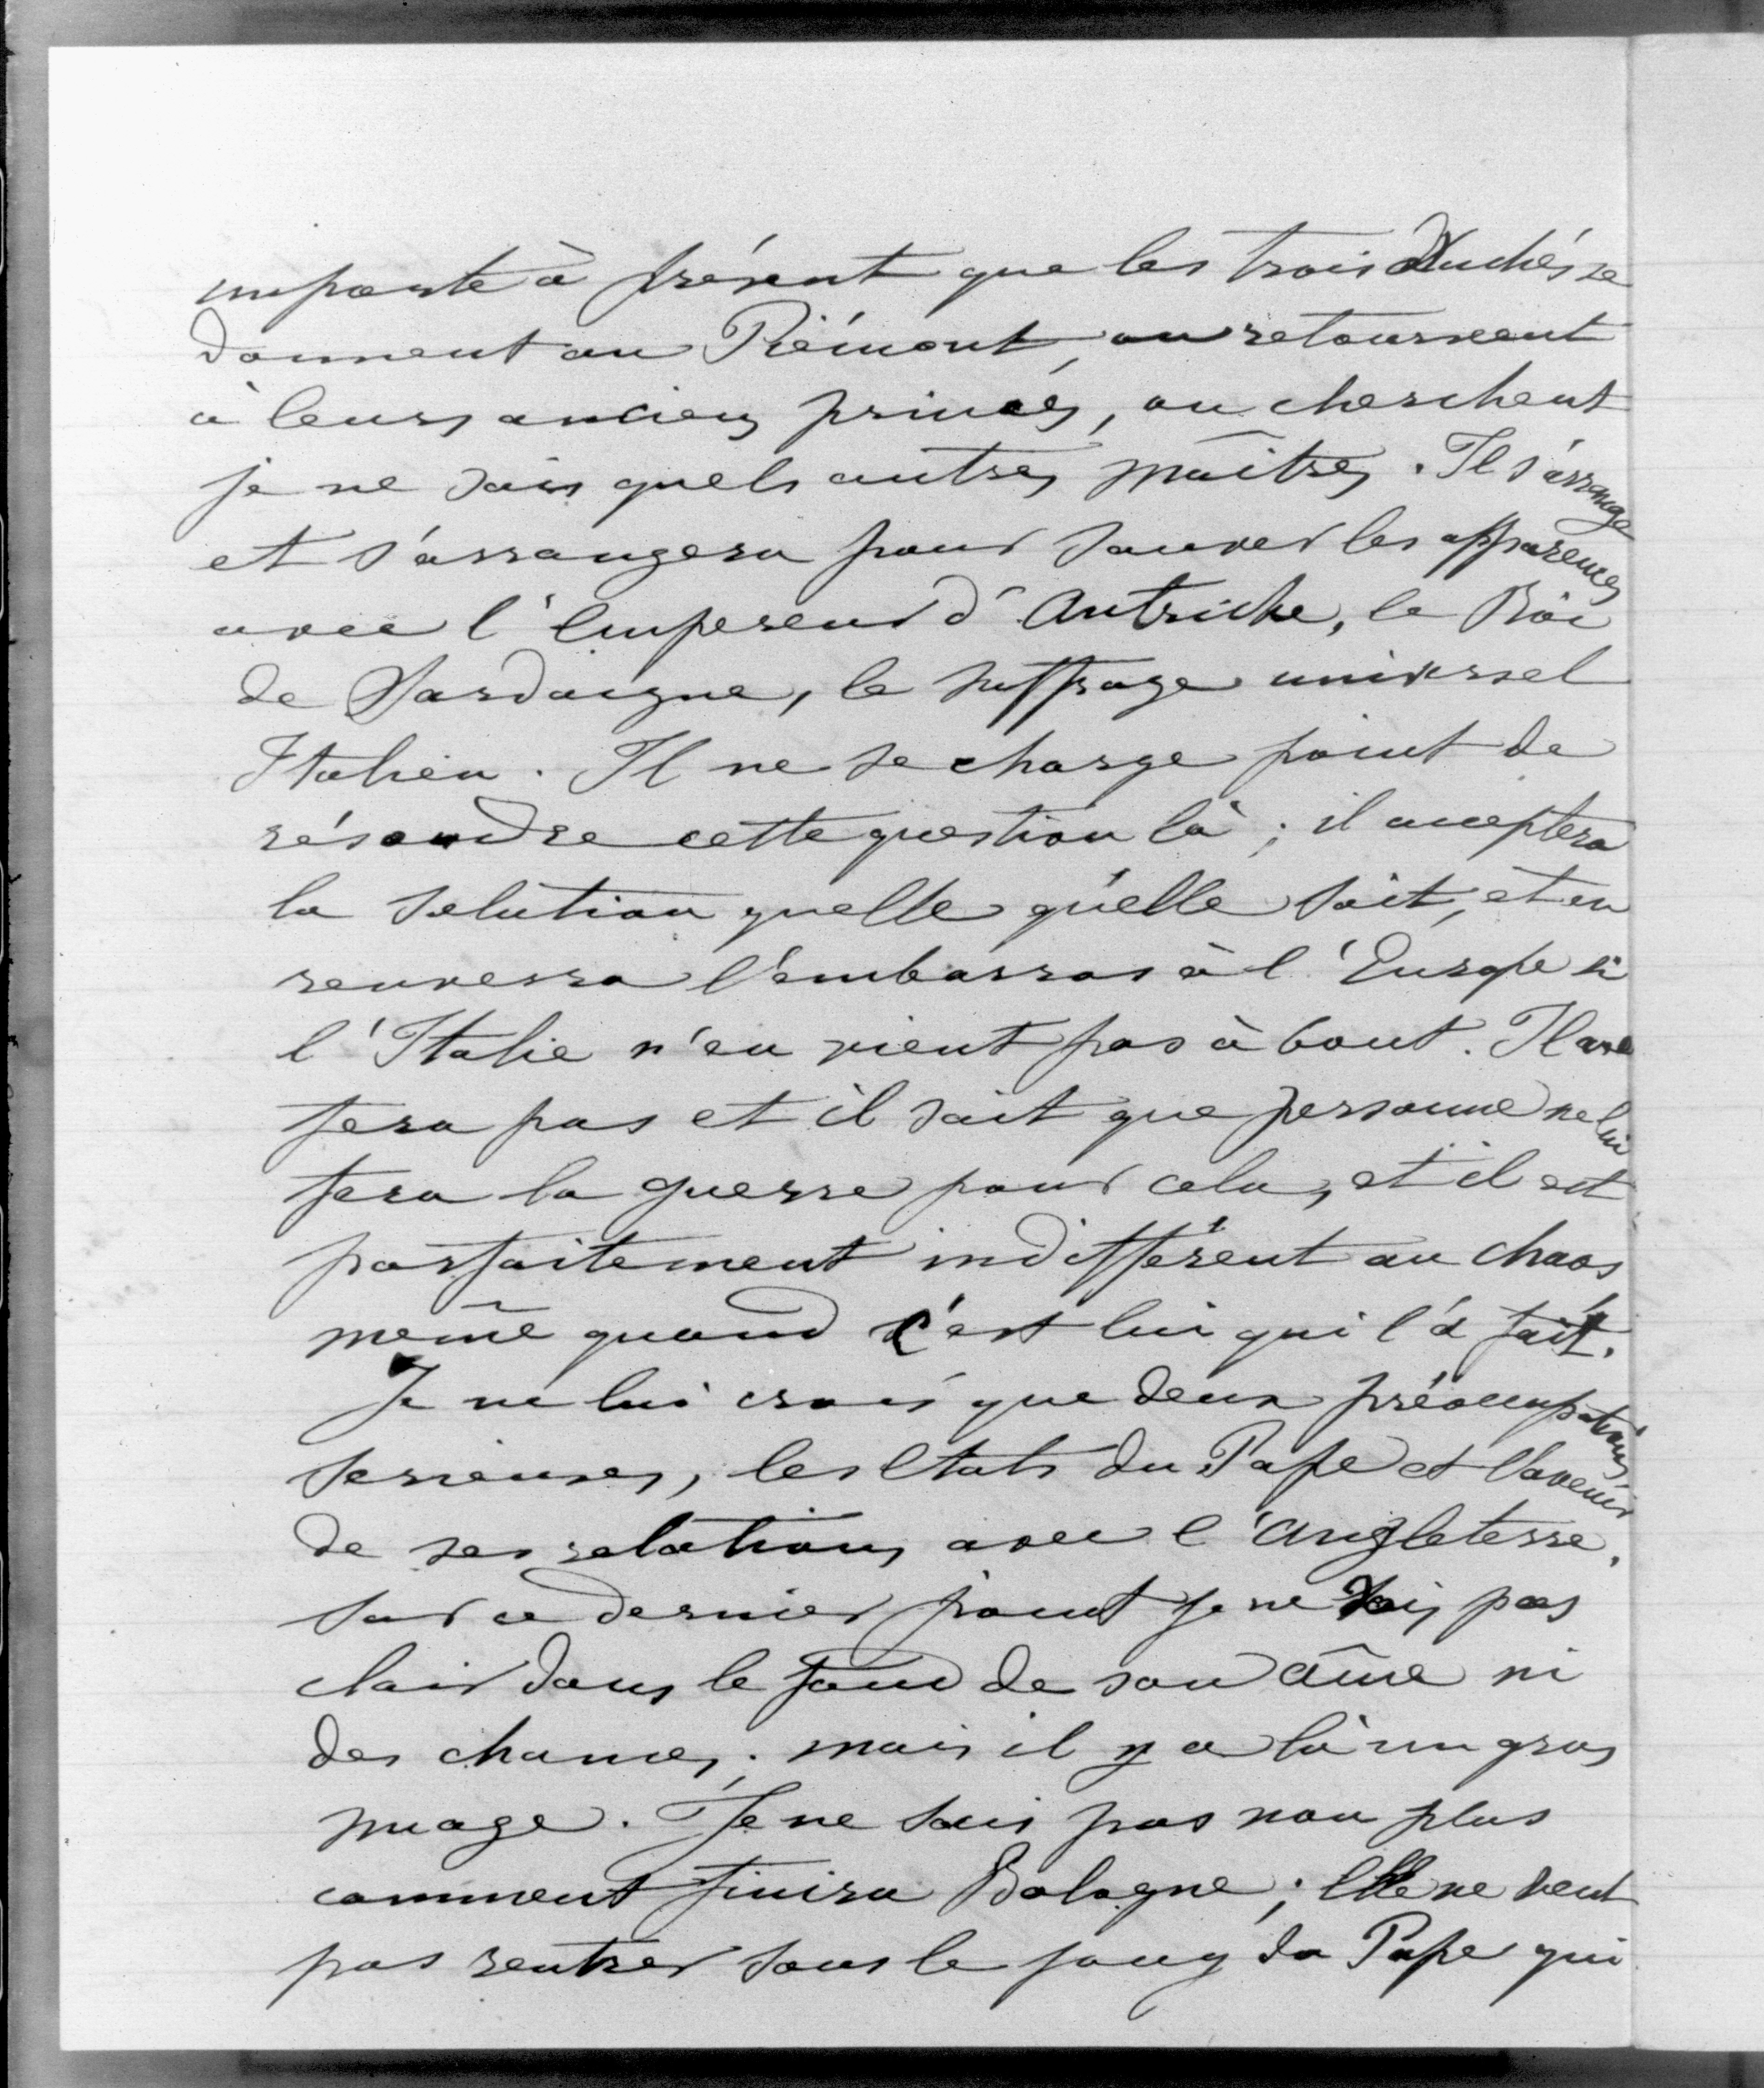 importe à présent que les trois Duchés se
donnent au Piémont, ou retournent
à leurs anciens princes, ou cherchent
je ne sais quels autres maîtres. Il s'arrange
et s'arrangera pour sauver les apparences
avec l'Empereur d'Autriche, le Roi
de Sardaigne, le suffrage universel
Italien. Il ne se charge point de
résoudre cette question là ; il acceptera
la solution quelle qu'elle soit, et en
renverra l'embarras à l'Europe si
l'Italie n'en vient pas à bout. Il ne
fera pas et il sait que personne ne lui
fera la guerre pour cela, et il est
parfaitement indifférent au chaos
même quand c'est lui qui l'a fait.
Je ne lui crois que deux préoccupations
serieuses, les Etats du Pape et l'avenir
de ses relations avec l'Angleterre.
Sur ce dernier point je ne vois pas
clair dans le fond de son âme ni
des chances ; mais il y a là un gros
nuage. Je ne sais pas non plus
comment finira Bologne ; Elle ne veut
pas rentrer sous le joug du Pape qui